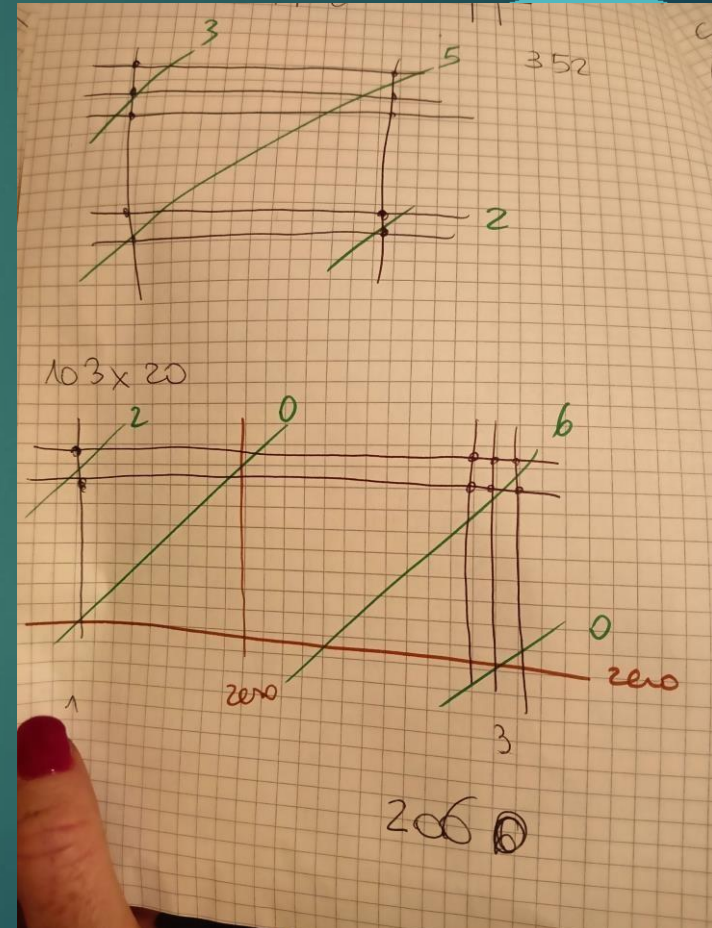 3
5 352
2
103 x 20
2 0 6
0
zero zero
1
3
2060